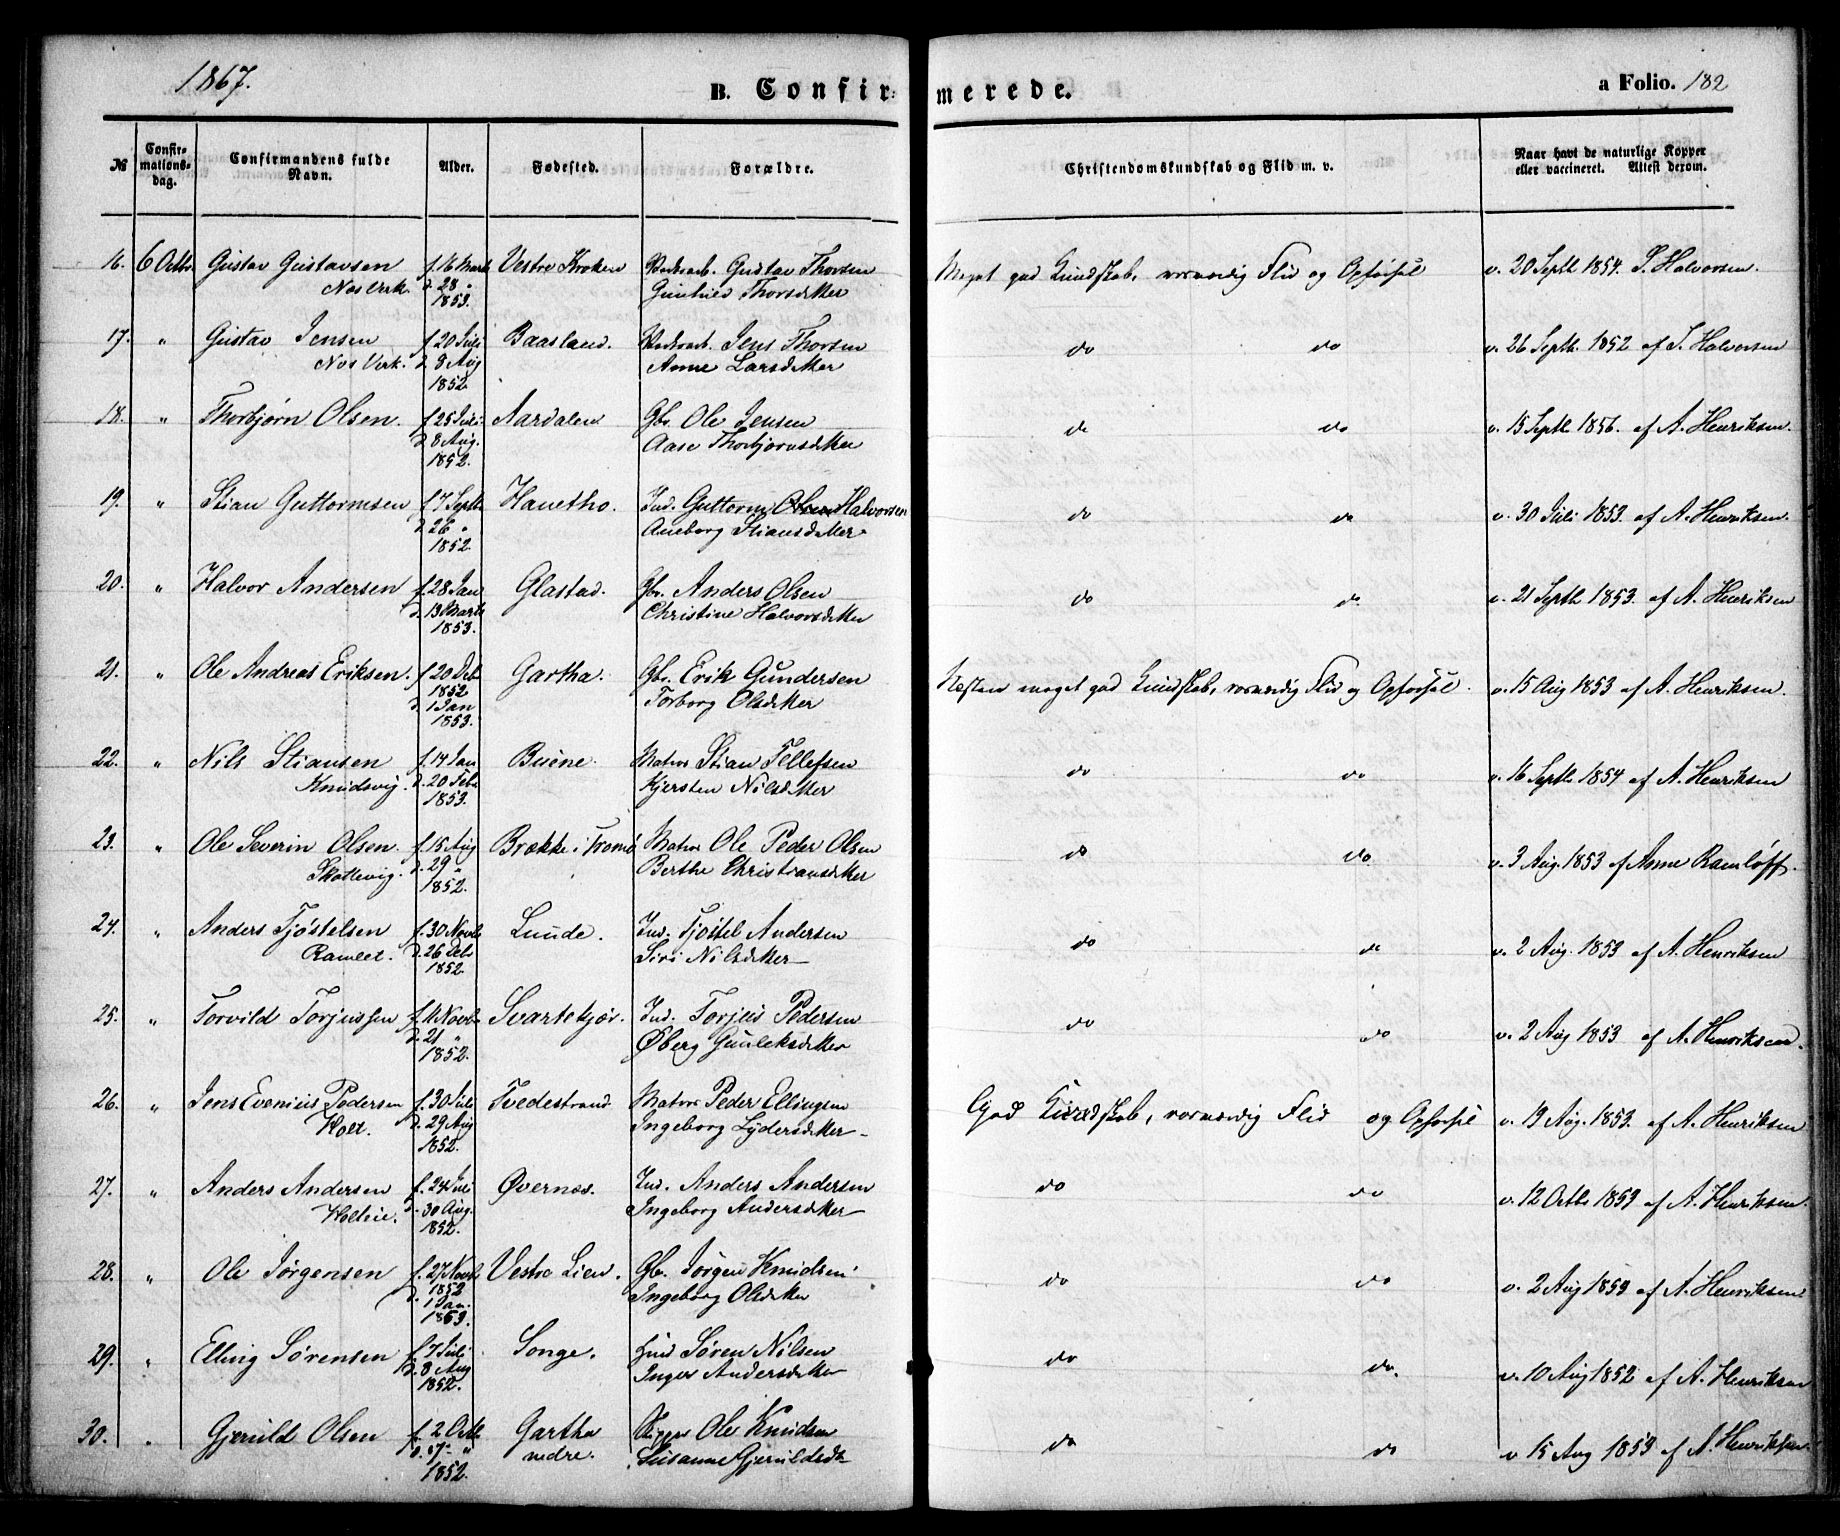 1867.
B. Confir-
merede.
a Folio. 182
№
Confir-
mations-
dag.
Confirmandens fulde
Navn.
Alder.
Fødested.
Forældre.
Christendomskundskab og Flid m. v.
Naar havt de naturlige Kopper
eller vaccineret. Attest derom.
16. 6 Octbr Gustav Gustavsen f. 16 Marts Vestre Kroken Gustav Thorsen Meget god Kundskab, Flid og Opførsel v. 20 Septb 1854. Halvorsen.
Nes Verk. d. 28 " Gunhild Thorsdatter
1853.
17. " Gustav Jensen f. 20 Juli Baasland. Jens Thorsen do do v. 26 Septb. 1852 af Halvorsen
Nes Verk. d. 8 Aug Anne Larsdatter
1852
18. " Thorbjørn Olsen. f. 25 Juli Aardalen Gbr. Ole Jensen do do v. 15 Septb 1856. af A. Henriksen.
d. 8 Aug. Aase Thorbjørnsdatter
1852.
19. " Stian Guttormsen f. 7 Septb Hanetho. Ind. Guttorm Halvorsen do do v. 30 Juli 1853. af A. Henriksen.
d. 26 " Anneborg Stiansdatter
1852
20. " Halvor Andersen f. 28 Jan Glastad. Gbr. Anders Olsen do do v. 21 Septb 1853. af A. Henriksen
d. 13 Marts Christine Halvorsdatter
1853.
21. " Ole Andreas Eriksen. f. 20 Deb Gartha. Gbr. Erik Gundersen Næsten meget god Kundskab, Flid og Opførsel. v. 15 Aug 1853 af A. Henriksen.
1852 Torborg Olsdatter
d. 1 Jan
1853.
22. " Nils Stiansen f. 14 Jan Buene. Matros Stian Tellefsen do do v. 16 Septb. 1854 af A. Henriksen
Knudsvig. d. 20 Feb. Kjersten Nilsdatter
1853.
23. " Ole Severin Olsen. f. 15 Aug Brække i Tromø Matros Ole Peder Olsen do do v. 3 Aug. 1853 af Anne Ramløff.
Skottevig. d. 29 " Berthe Christiansdatter
1852.
24. " Anders Tjøstelsen f. 30 Novb Lunde. Ind. Tjøstel Andersen do do v. 2 Aug. 1853 af A. Henriksen
Ramlet. d. 26 Deb Siri Nilsdatter
1852.
25. " Torvild Torjussen f. 11 Novb Svartekjær. Ind. Torjus Pedersen do do v. 2 Aug 1853 af A. Henriksen.
d. 21 " Øberg Gunleksdatter
1852.
26. " Jens Evenius Pedersen f. 30 Juli Tvedestrand Matros Peder Ellingsen God Kundskab, Flid og Opførsel v. 13 Aug. 1853. af A. Henriksen
Holt. d. 29 Aug Ingeborg Lydersdatter
1852.
27. " Anders Andersen f. 24 Juli Øvernes. Ind. Anders Andersen do do v. 12 Octb. 1853 af A. Henriksen.
Holteie. d. 30 Aug. Ingeborg Andersdatter
1852.
28. " Ole Jørgensen f. 27 Novb Vestre Lien. Gb. Jørgen Knudsen do do v. 2 Aug 1853 af A. Henriksen
1852 Ingeborg Olsdatter
d. 1 Jan.
1853.
29. " Elling Sørensen f. 7 Juli Songe. Søren Nilsen do do. v. 10 Aug 1852 af A. Henriksen
d. 8 Aug Inger Andersdatter
1852.
30. " Gjeruld Olsen f. 2 Octb Gartha Ole Knudsen do do v. 15 Aug 1853 af A. Henriksen
d. 17 " nedre. Susanne Gjeruldsdt
1852.